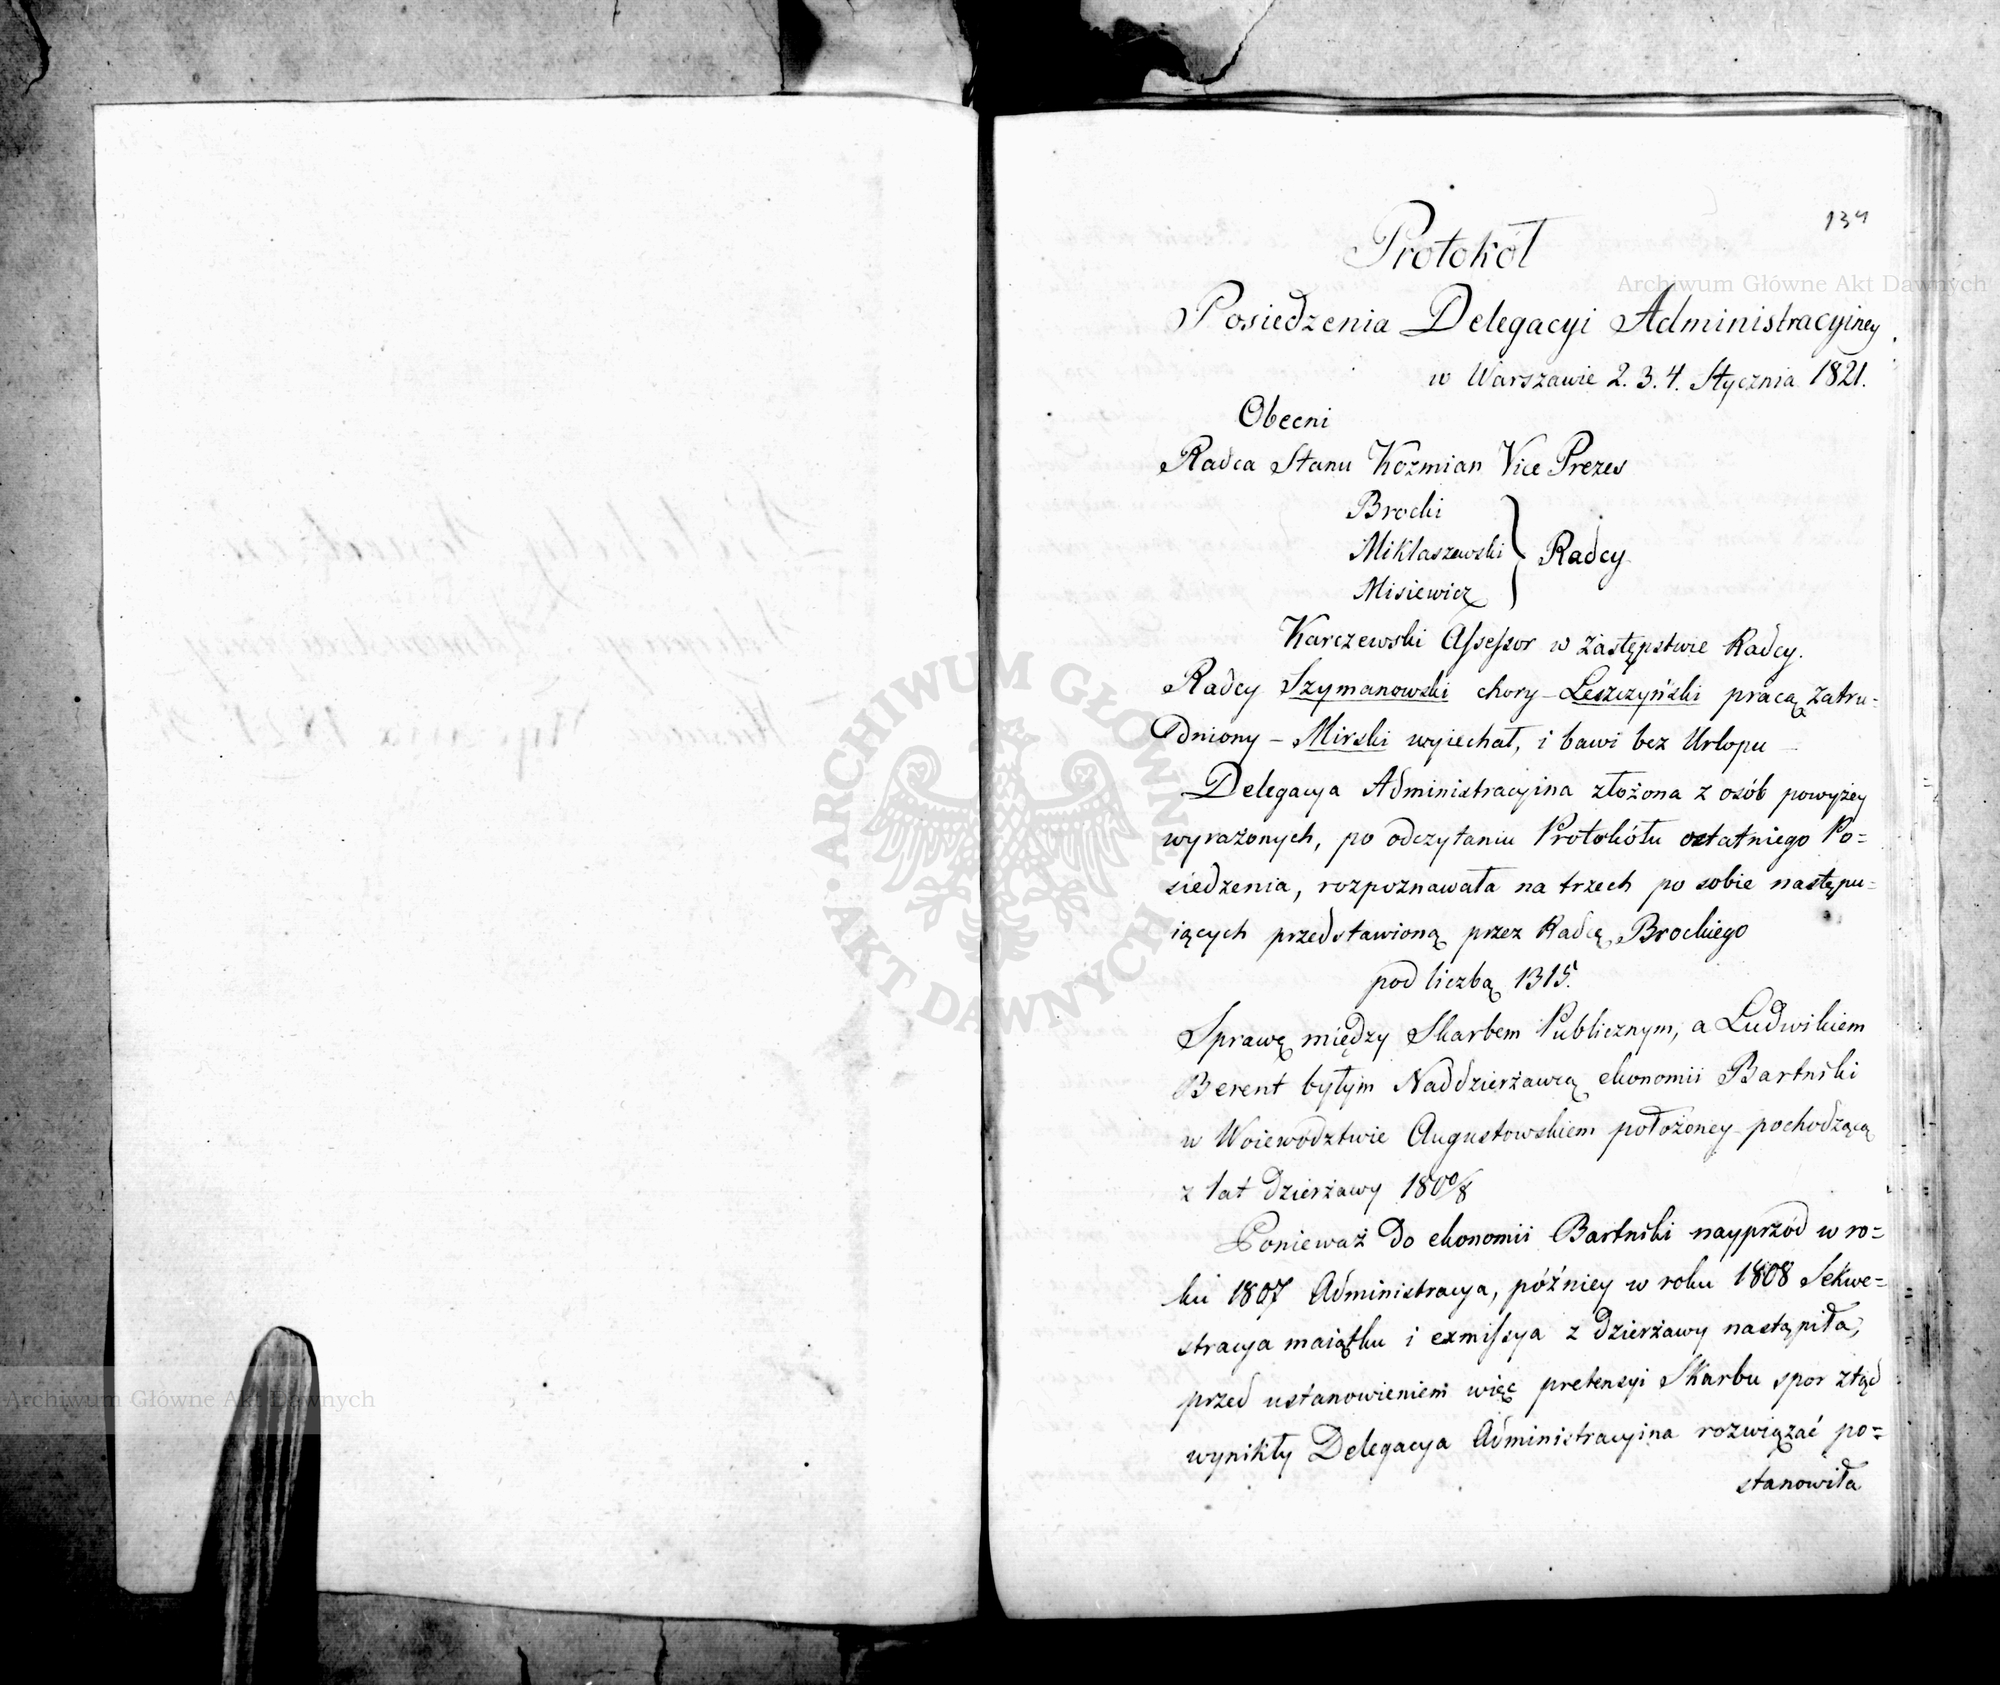 134
Protokół
Posiedzenia Delegacyi Administracyiney
w Warszawie 2. 3. 4. Stycznia 1821.
Obecni
Radca Stanu Kozmian Vice Prezes
Brocki
Miklaszewski } Radcy
Misiewicz
Karczewski Assessor w zastępstwie Radcy.
Radcy Szymanowski chory – Leszczyński pracą zatru-
dniony – Mirski wyiechał, i bawi bez Urlopu –
Delegacya Administracyina złożona z osób powyżey
wyrażonych, po odczytaniu Protokółu ostatniego Po=
siedzenia, rozpoznawała na trzech po sobie następu=
iących przedstawioną przez Radcę Brockiego
pod liczbą 1315.
Sprawę między Skarbem Publicznym, a Ludwikiem
Berent byłym Naddzierżawcą ekonomii Bartniki
w Woiewództwie Augustowskiem położoney pochodzącą
z lat dzierżawy
Ponieważ do ekonomii Bartniki nayprzód w ro=
ku 1807 Administracya, późniey w roku 1808 Sekwe=
stracya maiątku i exmissya z dzierżawy nastąpiła,
przed ustanowieniem więc pretensyi Skarbu spor ztąd
wynikły Delegacya Administracyina rozwiązać po=
stanowiła
Archiwum Główne Akt Dawnych
Archiwum Główne Akt Dawnych
ARCHIWUM GŁÓWNE AKT DAWNYCH